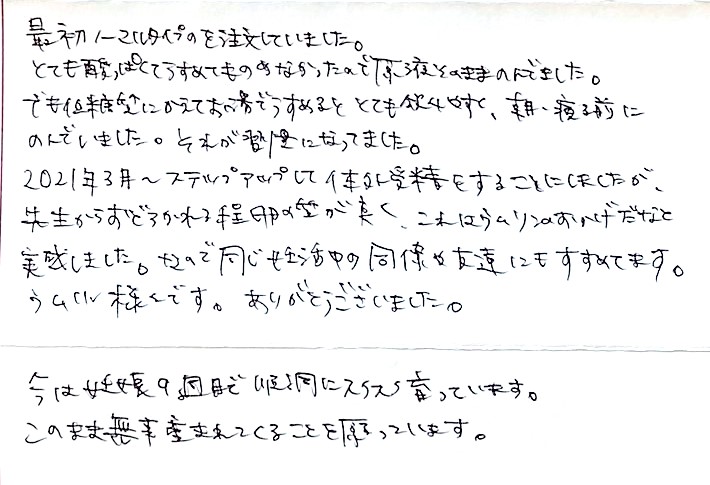 最初ノーマルタイプのを注文していました。
とても酸っぱくてうすめてものめなかったので原液そのままのんでました。
でも低糖質にかえてお湯でうすめると とても飲みやすく、朝・寝る前に
のんでいました。それが習慣になってました。
2021年3月〜ステップアップして体外受精をすることにしましたが、
先生からおどろかれる程卵の質が良く、これはラムリンのおかげだなと
実感しました。なので同じ妊活中の同僚や友達にもすすめてます。
ラムリン様々です。ありがとうございました。
今は妊娠9週目で順調にスクスク育っています。
このまま無事産まれてくることを願っています。